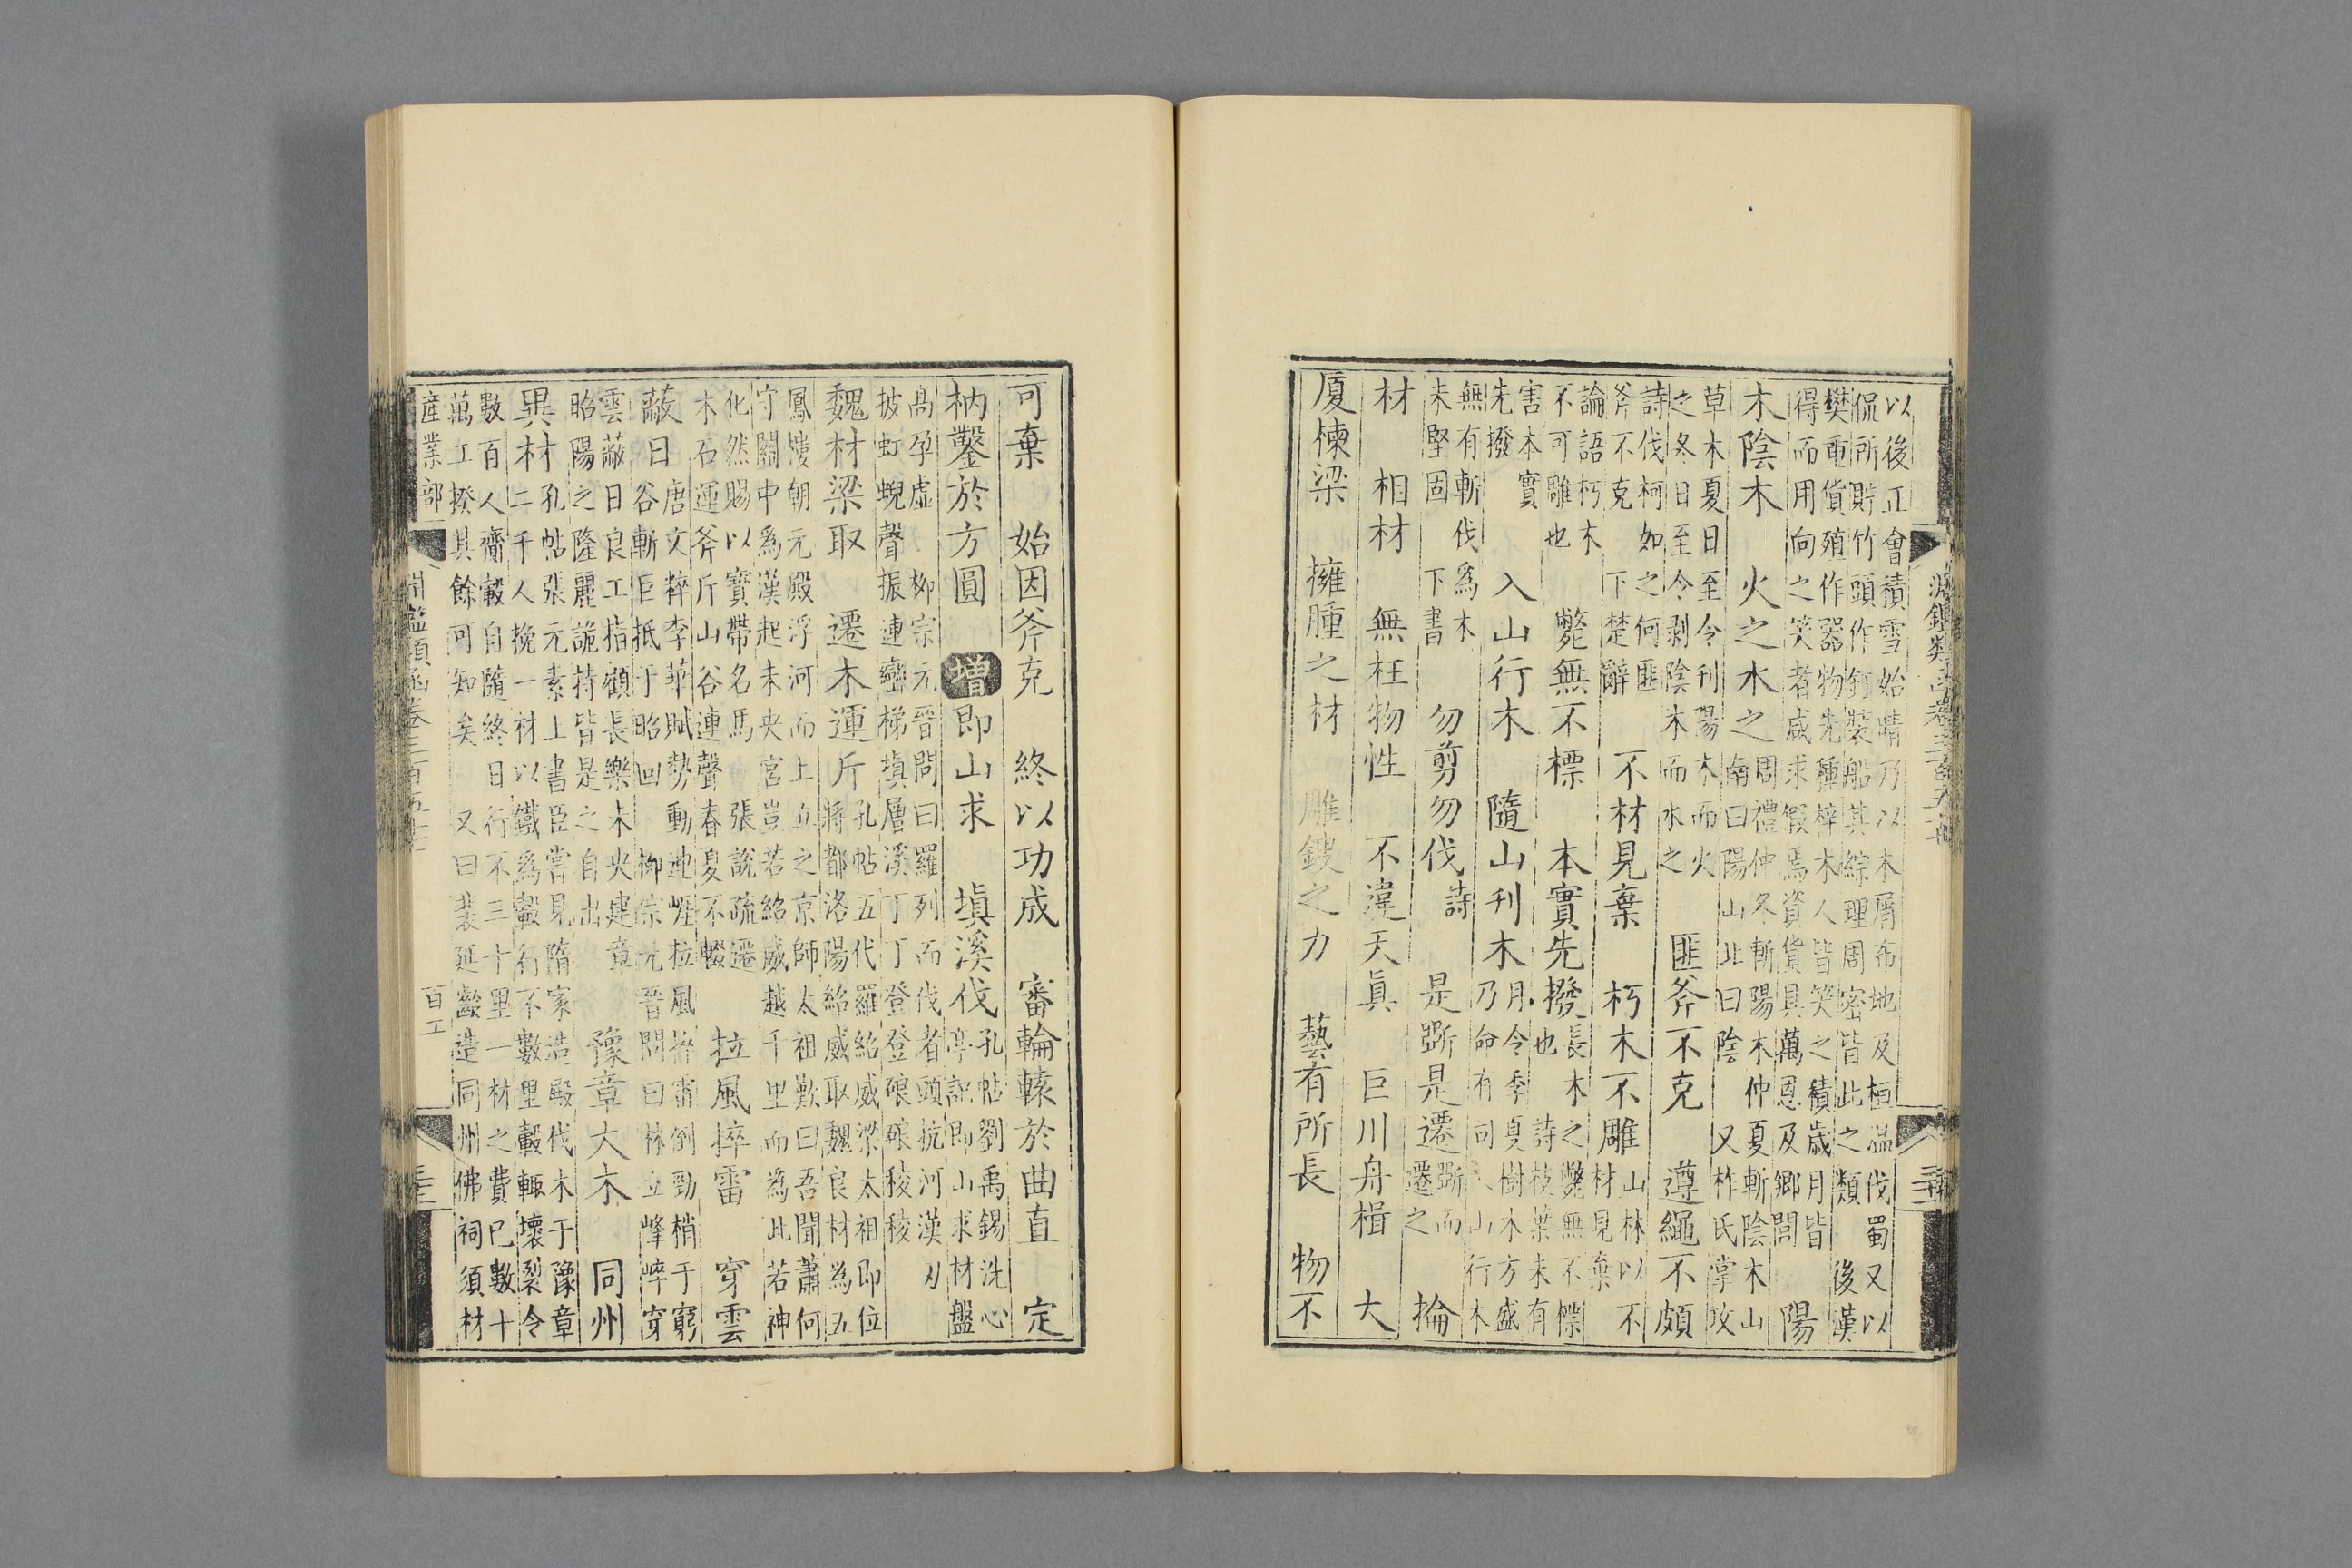 淵鑑類函卷三百五十
以後正會積雪始晴乃以木屑布地及桓溫伐蜀又以
侃所貯竹頭作釘裝船其綜理周密皆此之類 後漢
樊重貨殖作器物先種梓木人皆笑之積歲月皆
得而用向之笑者咸求假焉資貨具萬恩及鄉閭
陽
木陰木 火之水之
周禮仲冬斬陽木仲夏斬陰木山
南曰陽山北曰陰 又柞氏掌攻
草木夏日至令刊陽木而火
之冬日至令剥陰木而水之
匪斧不克 遵繩不頗
詩伐柯如之何匪
斧不克 下楚辭
不材見棄 朽木不雕
山林以不
材見棄
論語朽木
不可雕也
斃無不標 本實先撥
長木之斃無不標
也 詩枝葉未有
害本實
先撥
入山行木 隨山刊木
月令季夏樹木方盛
乃命有司入山行木
無有斬伐爲木
未堅固 下書
勿剪勿伐
詩
是斲是遷
斲而
遷之
掄
材 相材 無枉物性 不違天眞 巨川舟楫 大
厦棟梁 擁腫之材 雕鎪之力 藝有所長 物不
可棄 始因斧克 終以功成 審輪轅於曲直 定
枘鑿於方圓 增 即山求 塡溪伐
孔帖劉禹錫洗心
亭記即山求材盤
髙孕虛 柳宗元晉問曰羅列而伐者頭抗河漢刃
披虹蜺聲振連巒梯塡層溪丁丁登登硠硠稜稜
魏材梁取 遷木運斤
孔帖五代羅紹威梁太祖即位
將都洛陽紹威取魏良材爲五
鳳樓朝元殿浮河而上立之京師太祖歎曰吾聞蕭何
守關中爲漢起未央宮豈若紹威越千里而爲此若神
化然賜以寶帶名馬 張說疏遷
木石運斧斤山谷連聲春夏不輟
拉風捽雷 穿雲
蔽日
唐文粹李華賦勢動地崕拉風捽雷倒勁梢于窮
谷斬巨抵于昭回 柳宗元晉問曰林立峰崪穿
雲蔽日良工指顧長樂未央建章
昭陽之隆麗詭特皆是之自出
豫章大木 同州
異材
孔帖張元素上書臣嘗見隋家造殿伐木于豫章
二千人挽一材以鐵爲轂行不數里轂輒壞裂令
數百人齎轂自隨終日行不三十里一材之費已數十
萬工揆其餘可知矣 又曰裴延齡造同州佛祠須材
産業部 淵鑑類函卷三百五十 百工